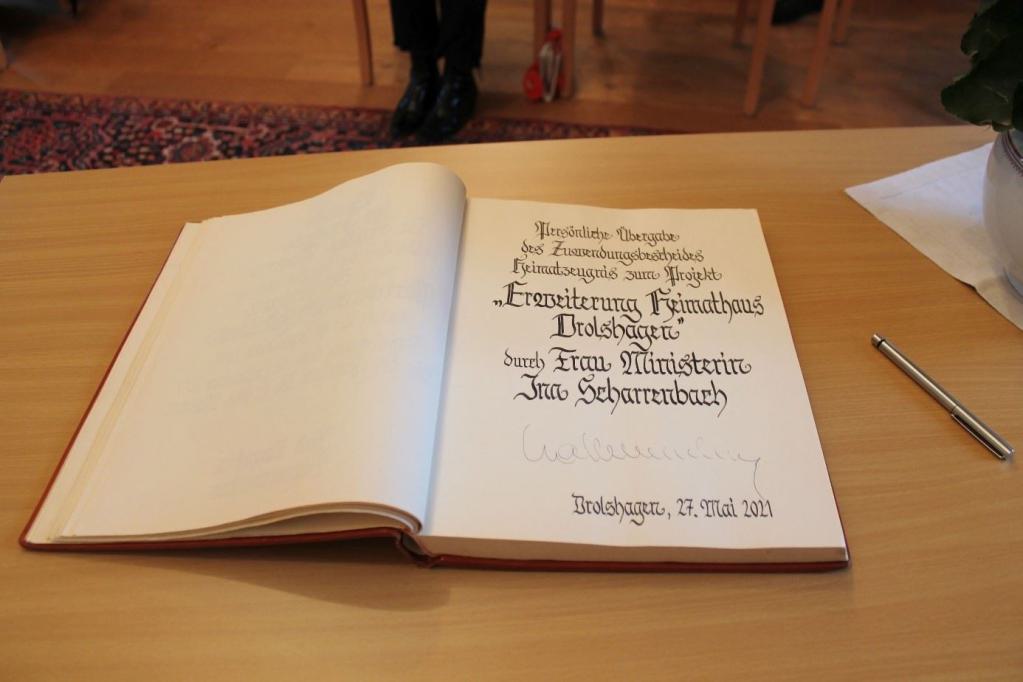 Persönliche Übergabe
des Zuwendungsbescheides
Heimatzeugnis zum Projekt
„Erweiterung Heimathaus
Drolshagen"
durch Frau Ministerin
Ina Scharrenbach
Drolshagen, 27. Mai 2021